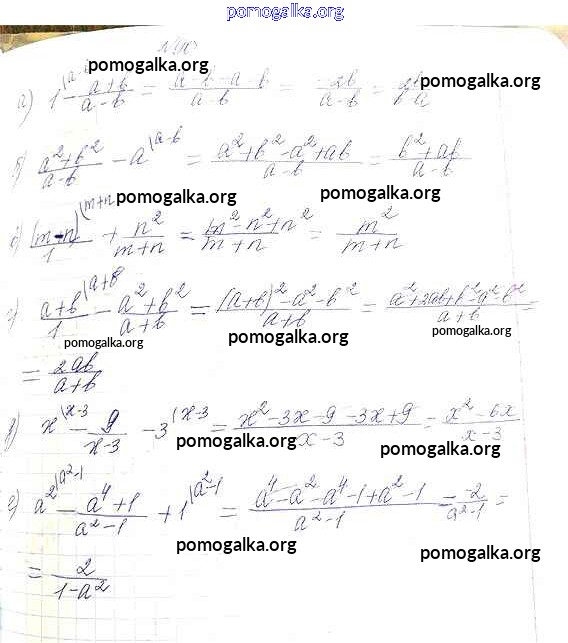 pomogalka.org
pomogalka.org
а) 1 - (a+b)/(a-b) = (a-b-a-b)/(a-b) = -2b/(a-b) = 2b/(b-a)
pomogalka.org
б) (a²+b²)/(a-b) - a^{\(a-b} = (a²+b²-a²+ab)/(a-b) = (b²+ab)/(a-b)
pomogalka.org pomogalka.org
(m-n)/1^{\(m+n} + n²/(m+n) = (m²-n²+n²)/(m+n) = m²/(m+n)
г) (a+b)/1^{\(a+b} - (a²+b²)/(a+b) = ((a+b)²-a²-b²)/(a+b) = (a²+2ab+b²-a²-b²)/(a+b) =
pomogalka.org pomogalka.org pomogalka.org
= 2ab/(a+b)
x^{\(x-3} - 9/(x-3) - 3^{\(x-3} = (x²-3x-9-3x+9)/(x-3) = (x²-6x)/(x-3)
pomogalka.org pomogalka.org
е) a²^{\(a²-1} - (a⁴+1)/(a²-1) + 1^{\(a²-1} = (a⁴-a²-a⁴-1+a²-1)/(a²-1) = -2/(a²-1) =
pomogalka.org pomogalka.org
= 2/(1-a²)
pomogalka.org